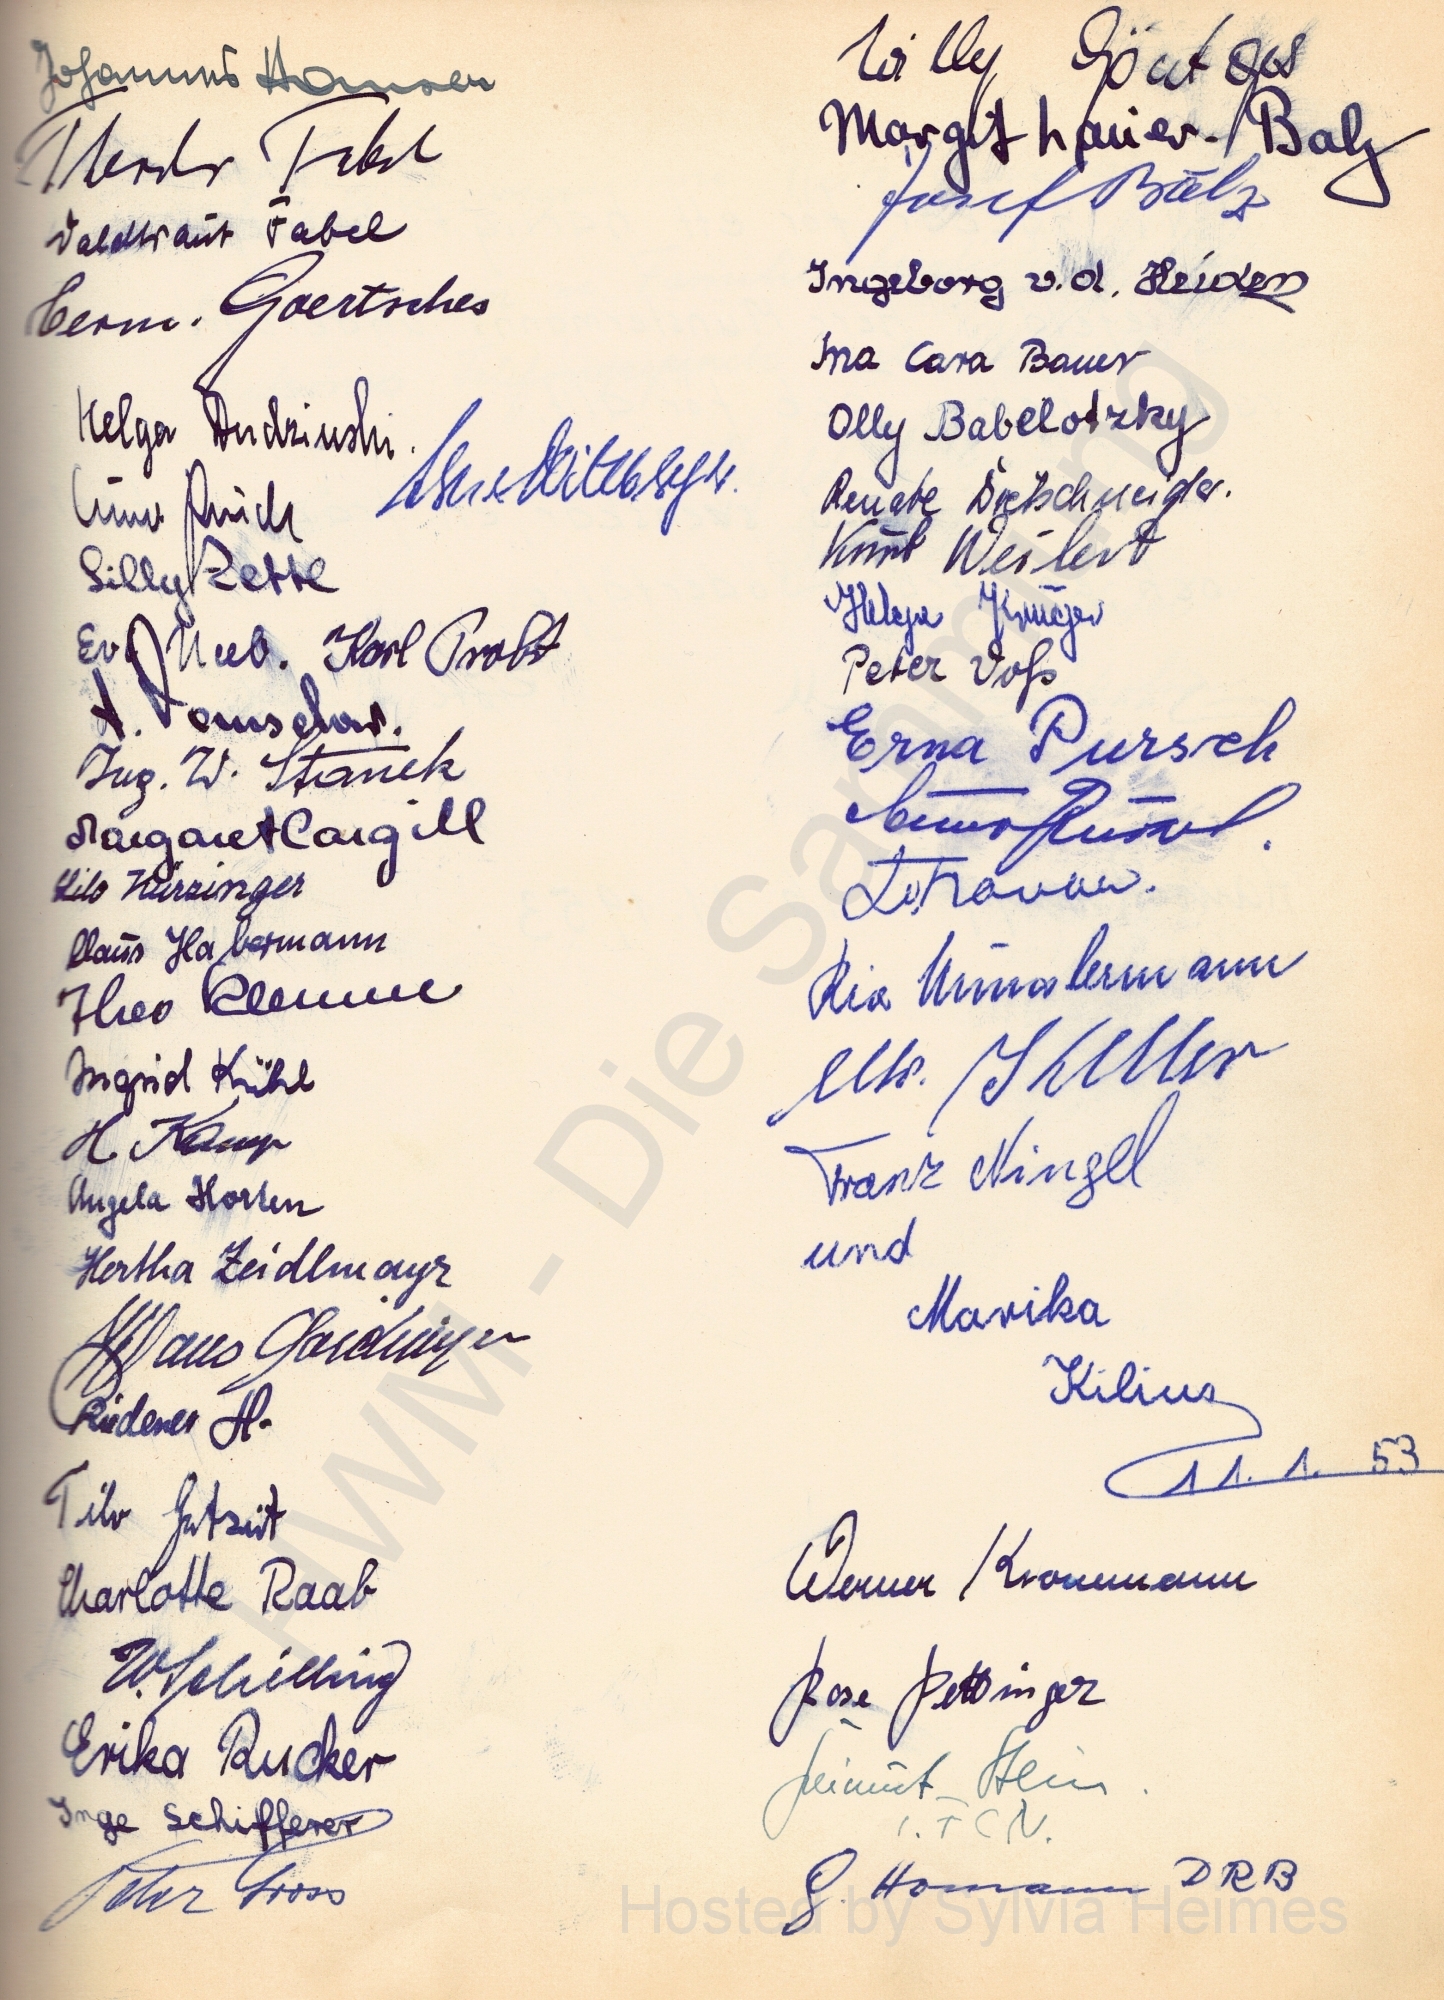 Johannes Hansen
Theodor Fabel
Waldtraut Fabel
Herm. Goertsches
Helga Dudzinski.
Silly Zette
Eva Neeb. Karl Probst
Ing. W. Stanek
Margaret Cargill
Hilo Hirzinger
Claus Habermann
Theo Klemme
Ingrid Kühl
H Kamp
Angela Horten
Hertha Zeidlmayr
Hans Gerschwiler
Riederer H.
Tilo Gutzeit
Charlotte Raab
W. Schilling
Erika Rucker
Inge Schifferer
Peter Gross
Willy
Margit Lauer-Balz
Josef Balz
Ingeborg v.d. Heiden
Ina Cara Bauer
Olly Babelotzky
Renate Dietschneider.
Kurt Weilert
Helga Krüger
Peter Voß
Erna Pursch
Ria Mundermann
Keller
Franz Ningel
und
Marika
Kilius
11. 1. 53
Werner Kronemann
Rose Pettinger
Helmut Stein.
I.T.C.N.
G. Homann DRB
HWM - Die Sammlung
Hosted by Sylvia Heimes